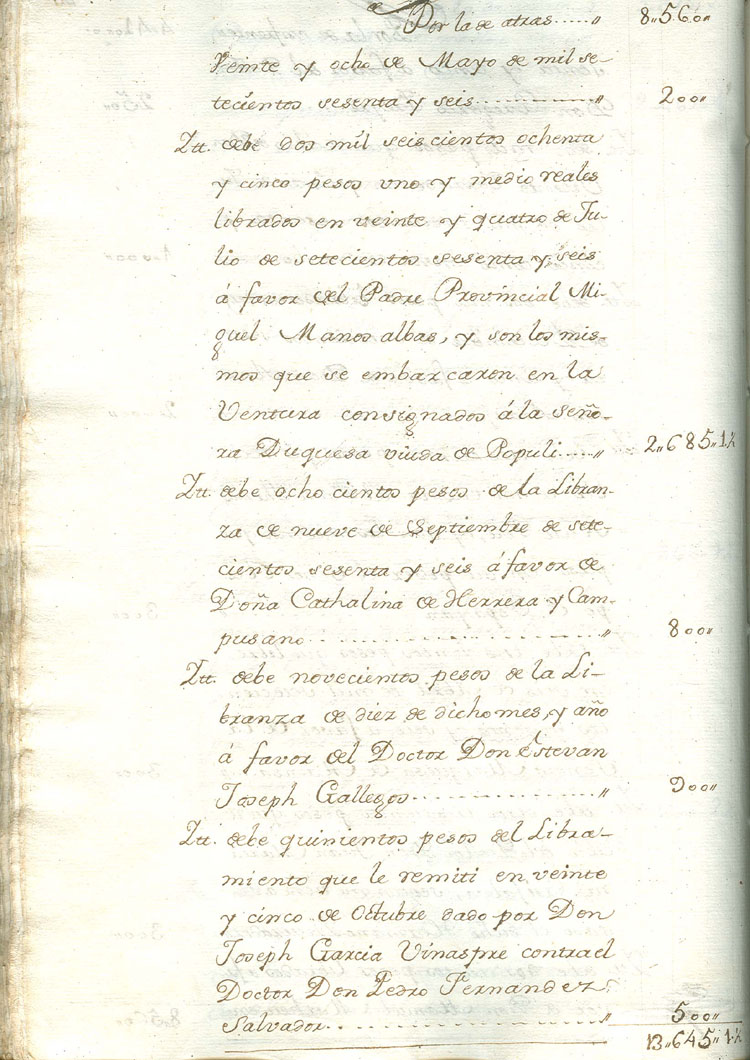 Por la de atras......〃 8〃560〃
Veinte y ocho de Mayo de mil se-
tecientos sesenta y seis............〃 200〃
Itt. debe dos mil seiscientos ochenta
y cinco pesos uno y medio reales
librados en veinte y quatro de Ju-
lio de setecientos sesenta y seis
á favor del Padre Provincial Mi-
guel Manos albas, y son los mis-
mos que se embarcaron en la
Ventura consignados á la Seño-
ra Duquesa viuda de Populi......〃 2〃685〃1½
Itt. debe ocho cientos pesos de la Libran-
za de nueve de Septiembre de sete-
cientos sesenta y seis á favor de
Doña Cathalina de Herrera y Cam-
pusano............〃 800〃
Itt. debe novecientos pesos de la Li-
branza de diez de dicho mes, y año
á favor del Doctor Don Estevan
Joseph Gallegos............〃 900〃
Itt. debe quinientos pesos del Libra-
miento que le remiti en veinte
y cinco de Octubre dado por Don
Joseph Garcia Vinaspre contra el
Doctor Don Pedro Fernandez
Salvador............〃 500〃
13〃645〃1½